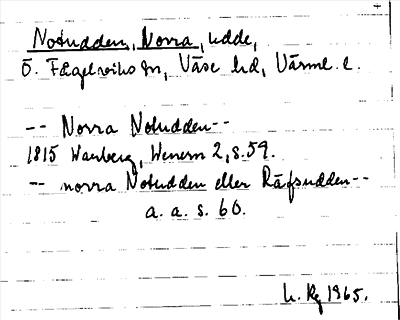 Notudden, Norra, udde,
Ö. Fågelviks sn, Väse hd, Värml. l.
-- Norra Notudden --
1815 Warberg, Wenern 2, s. 59.
-- norra Notudden eller Räfsudden --
a. a. s. 60.
1965.